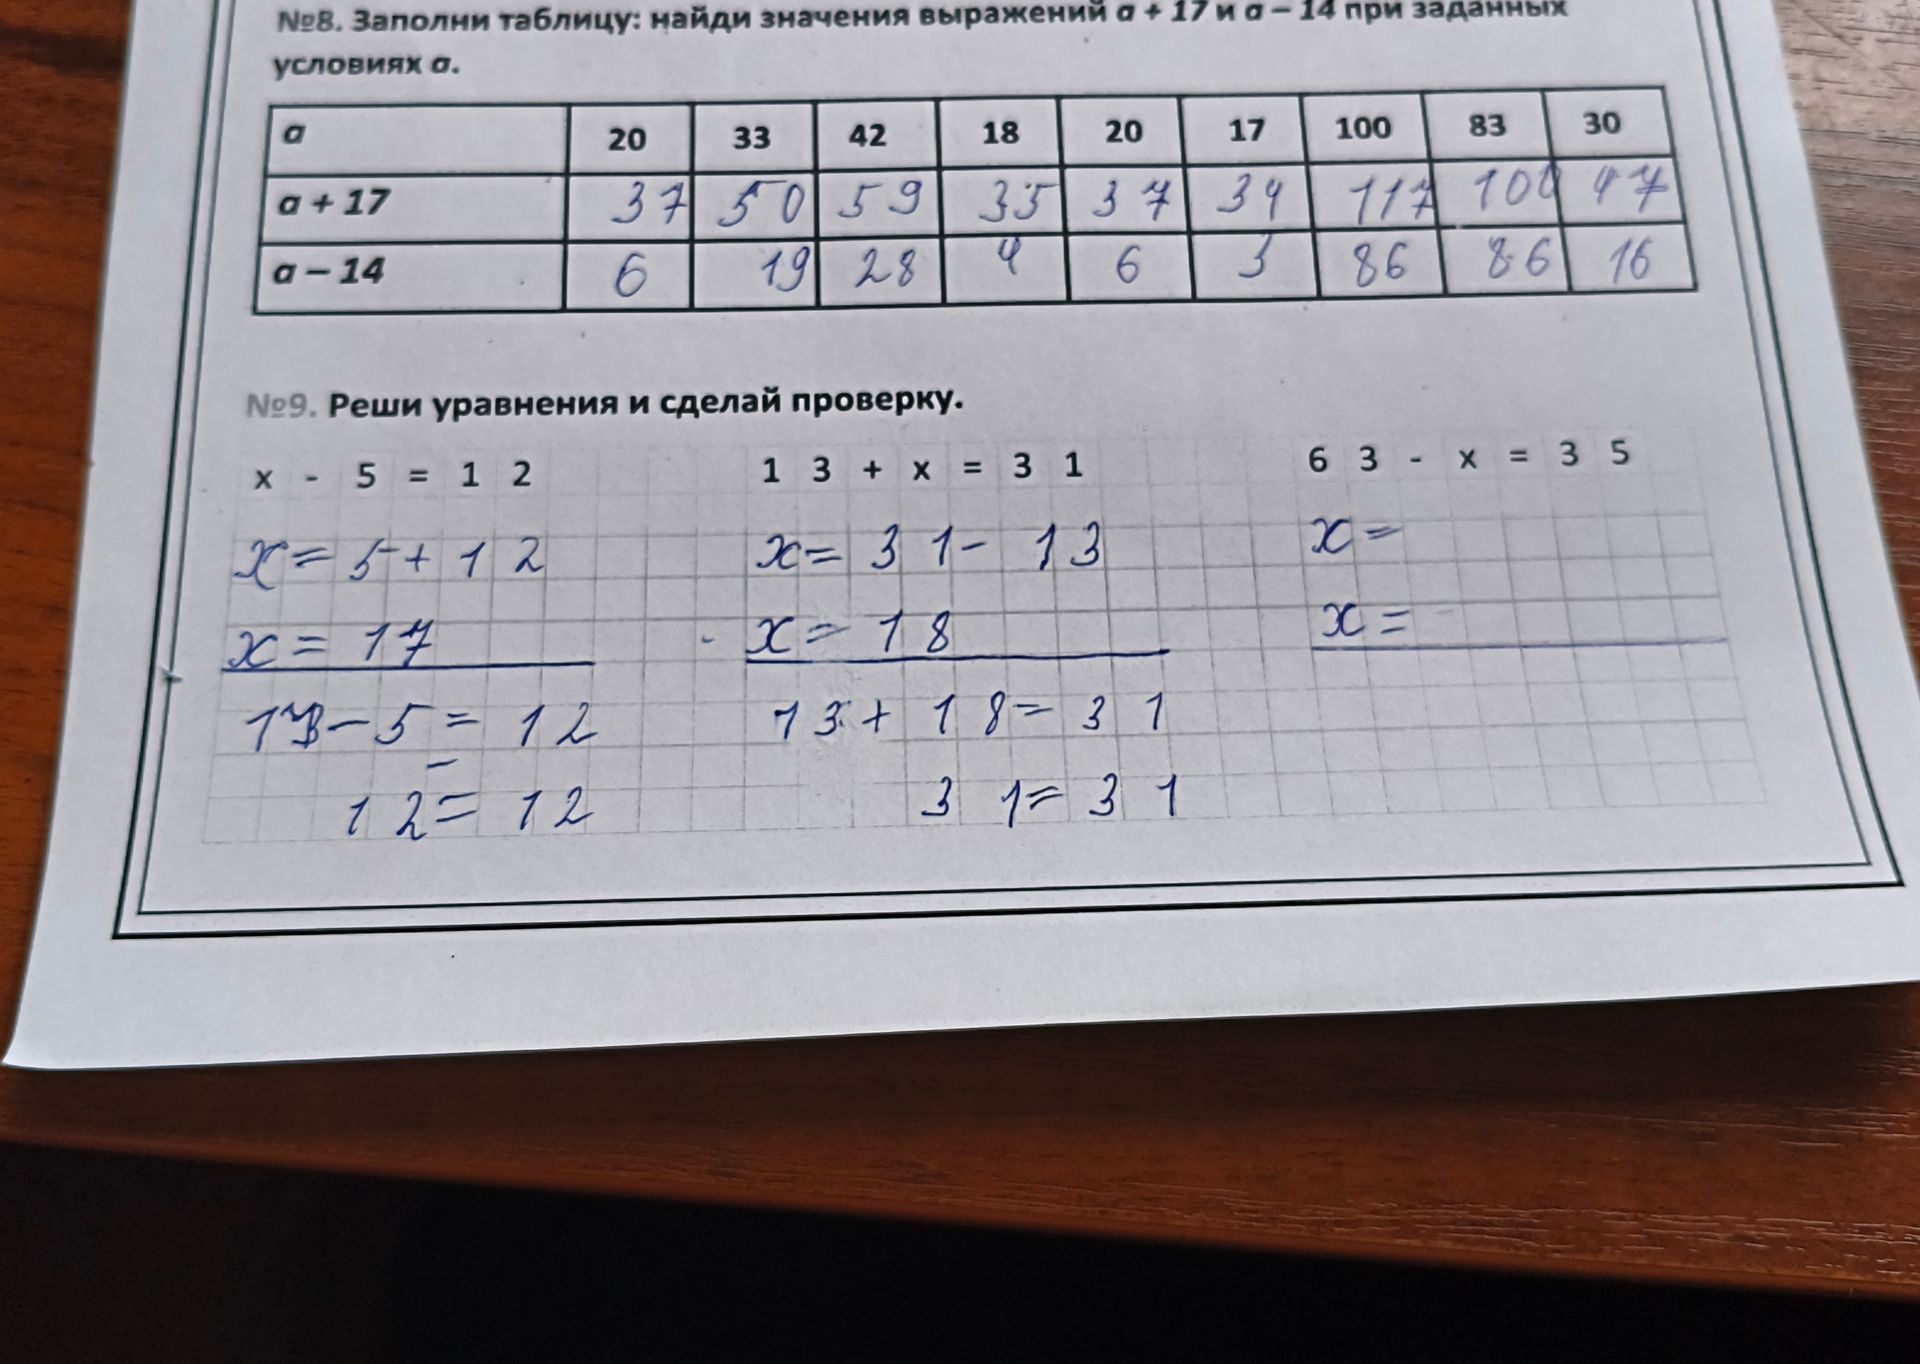 №8. Заполни таблицу: найди значения выражений a + 17 и a – 14 при заданных
условиях a.
a 20 33 42 18 20 17 100 83 30
a + 17 37 50 59 35 37 34 117 100 47
a – 14 6 19 28 4 6 3 86 86 16
№9. Реши уравнения и сделай проверку.
x - 5 = 1 2 1 3 + x = 3 1 6 3 - x = 3 5
x = 5 + 1 2 x = 3 1 - 1 3 x =
x = 1 7 x = 1 8 x =
- 5 = 1 2 1 3 + 1 8 = 3 1
1 2 = 1 2 3 1 = 3 1